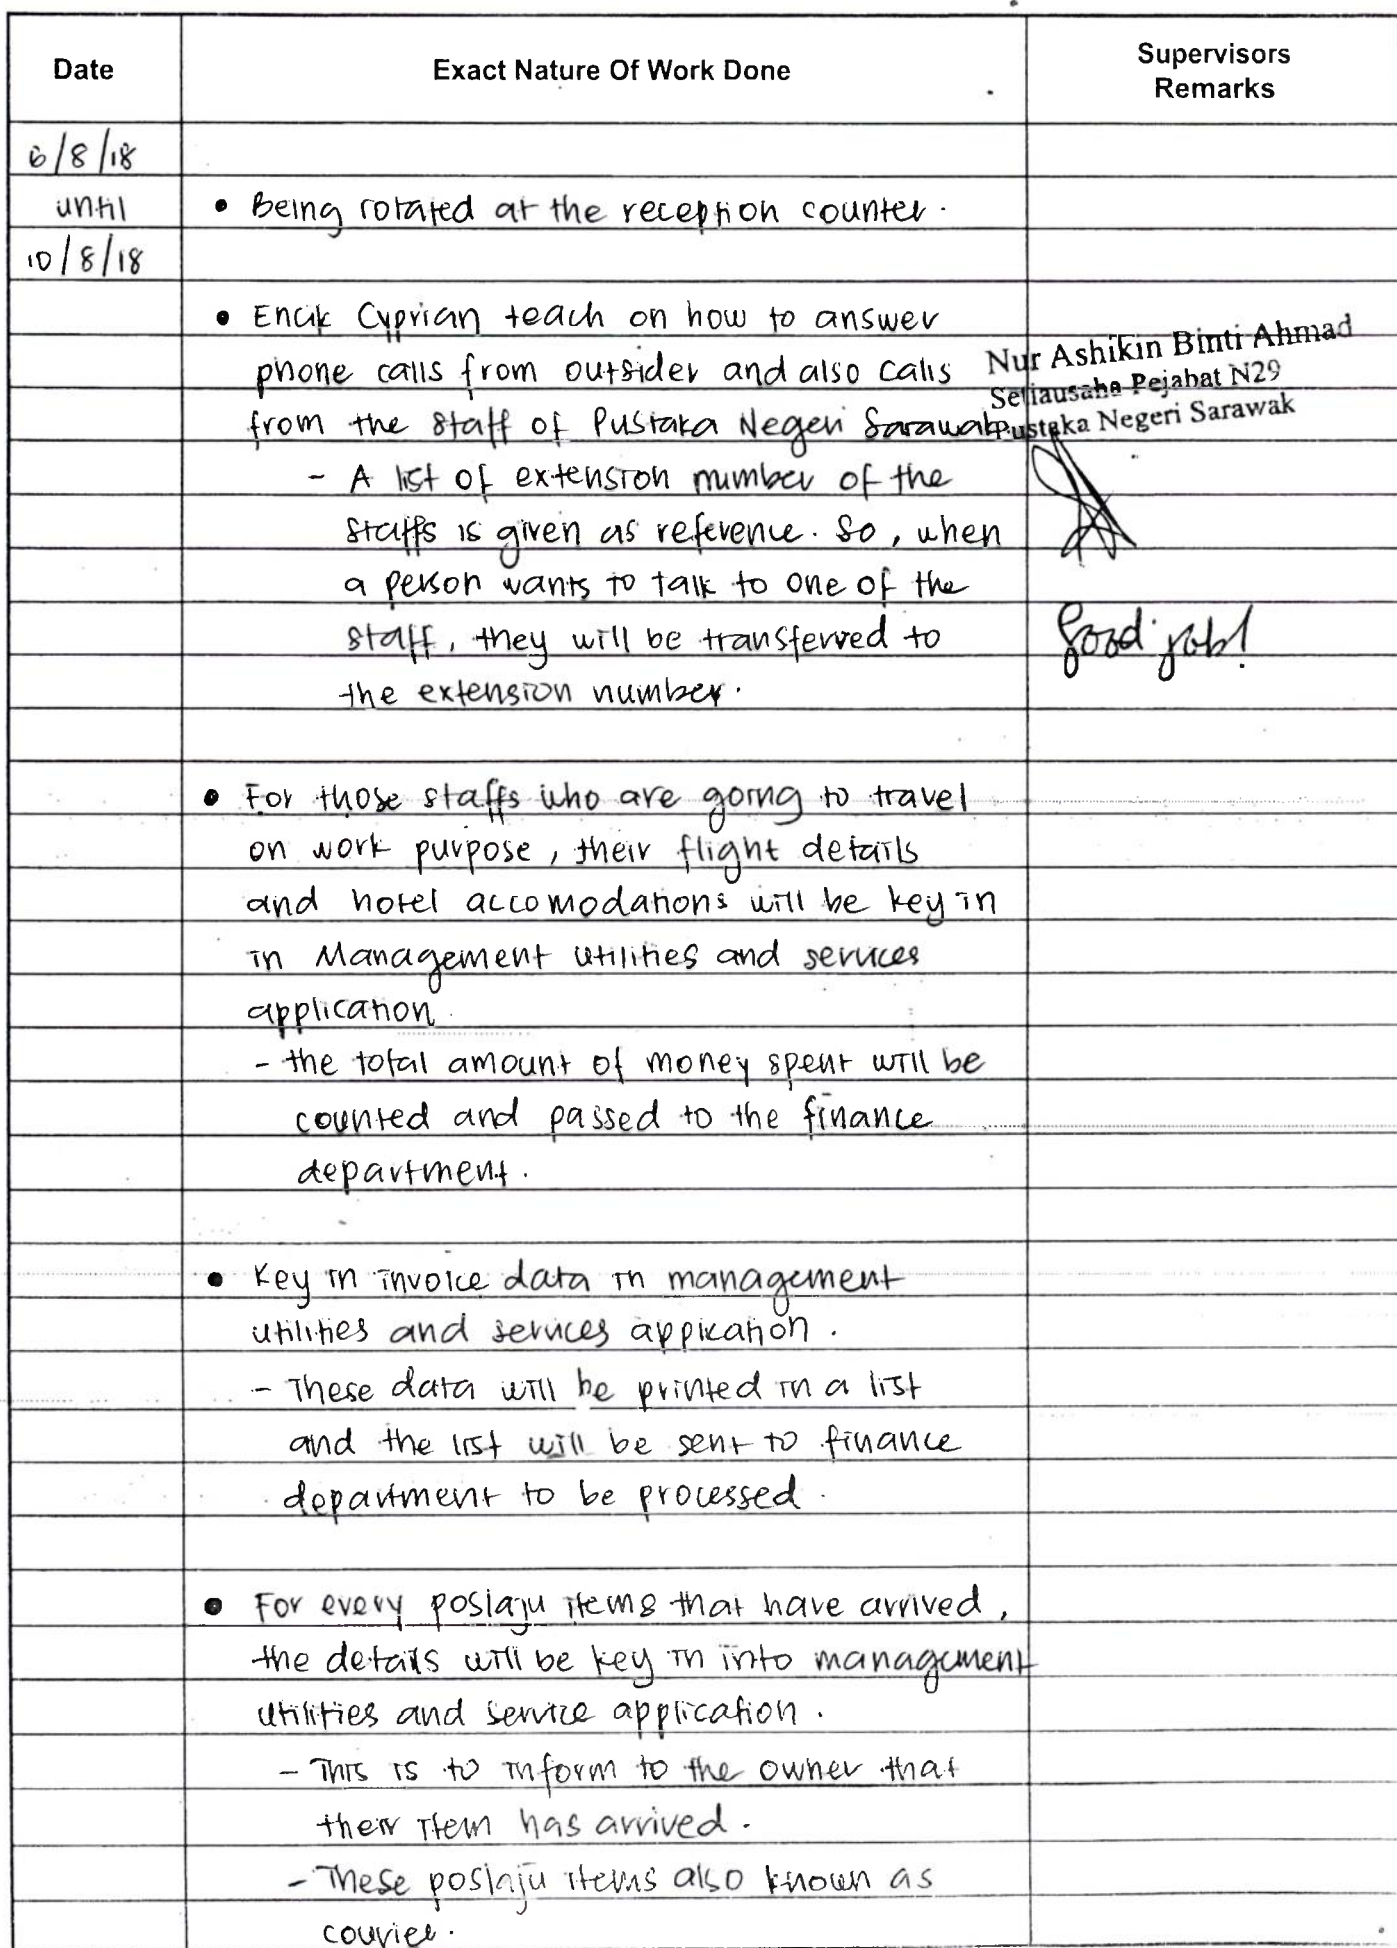 Date
Exact Nature Of Work Done
Supervisors
Remarks
6/8/18
until
• Being rotated at the reception counter.
10/8/18
• Encik Cyprian teach on how to answer
phone calls from outsider and also calls
from the staff of Pustaka Negeri Sarawak.
- A list of extension number of the
staffs is given as reference. So, when
a person wants to talk to one of the
staff, they will be transferred to
the extension number.
Nur Ashikin Binti Ahmad
Setiausaha Pejabat N29
Pustaka Negeri Sarawak
Good job!
• For those staffs who are going to travel
on work purpose, their flight details
and hotel accomodations will be key in
in Management utilities and services
application
- the total amount of money spent will be
counted and passed to the finance
department.
• Key in invoice data in management
utilities and services application.
- These data will be printed in a list
and the list will be sent to finance
department to be processed.
• For every poslaju items that have arrived,
the details will be key in into management
utilities and service application.
- This is to inform to the owner that
their item has arrived.
- These poslaju items also known as
courier.